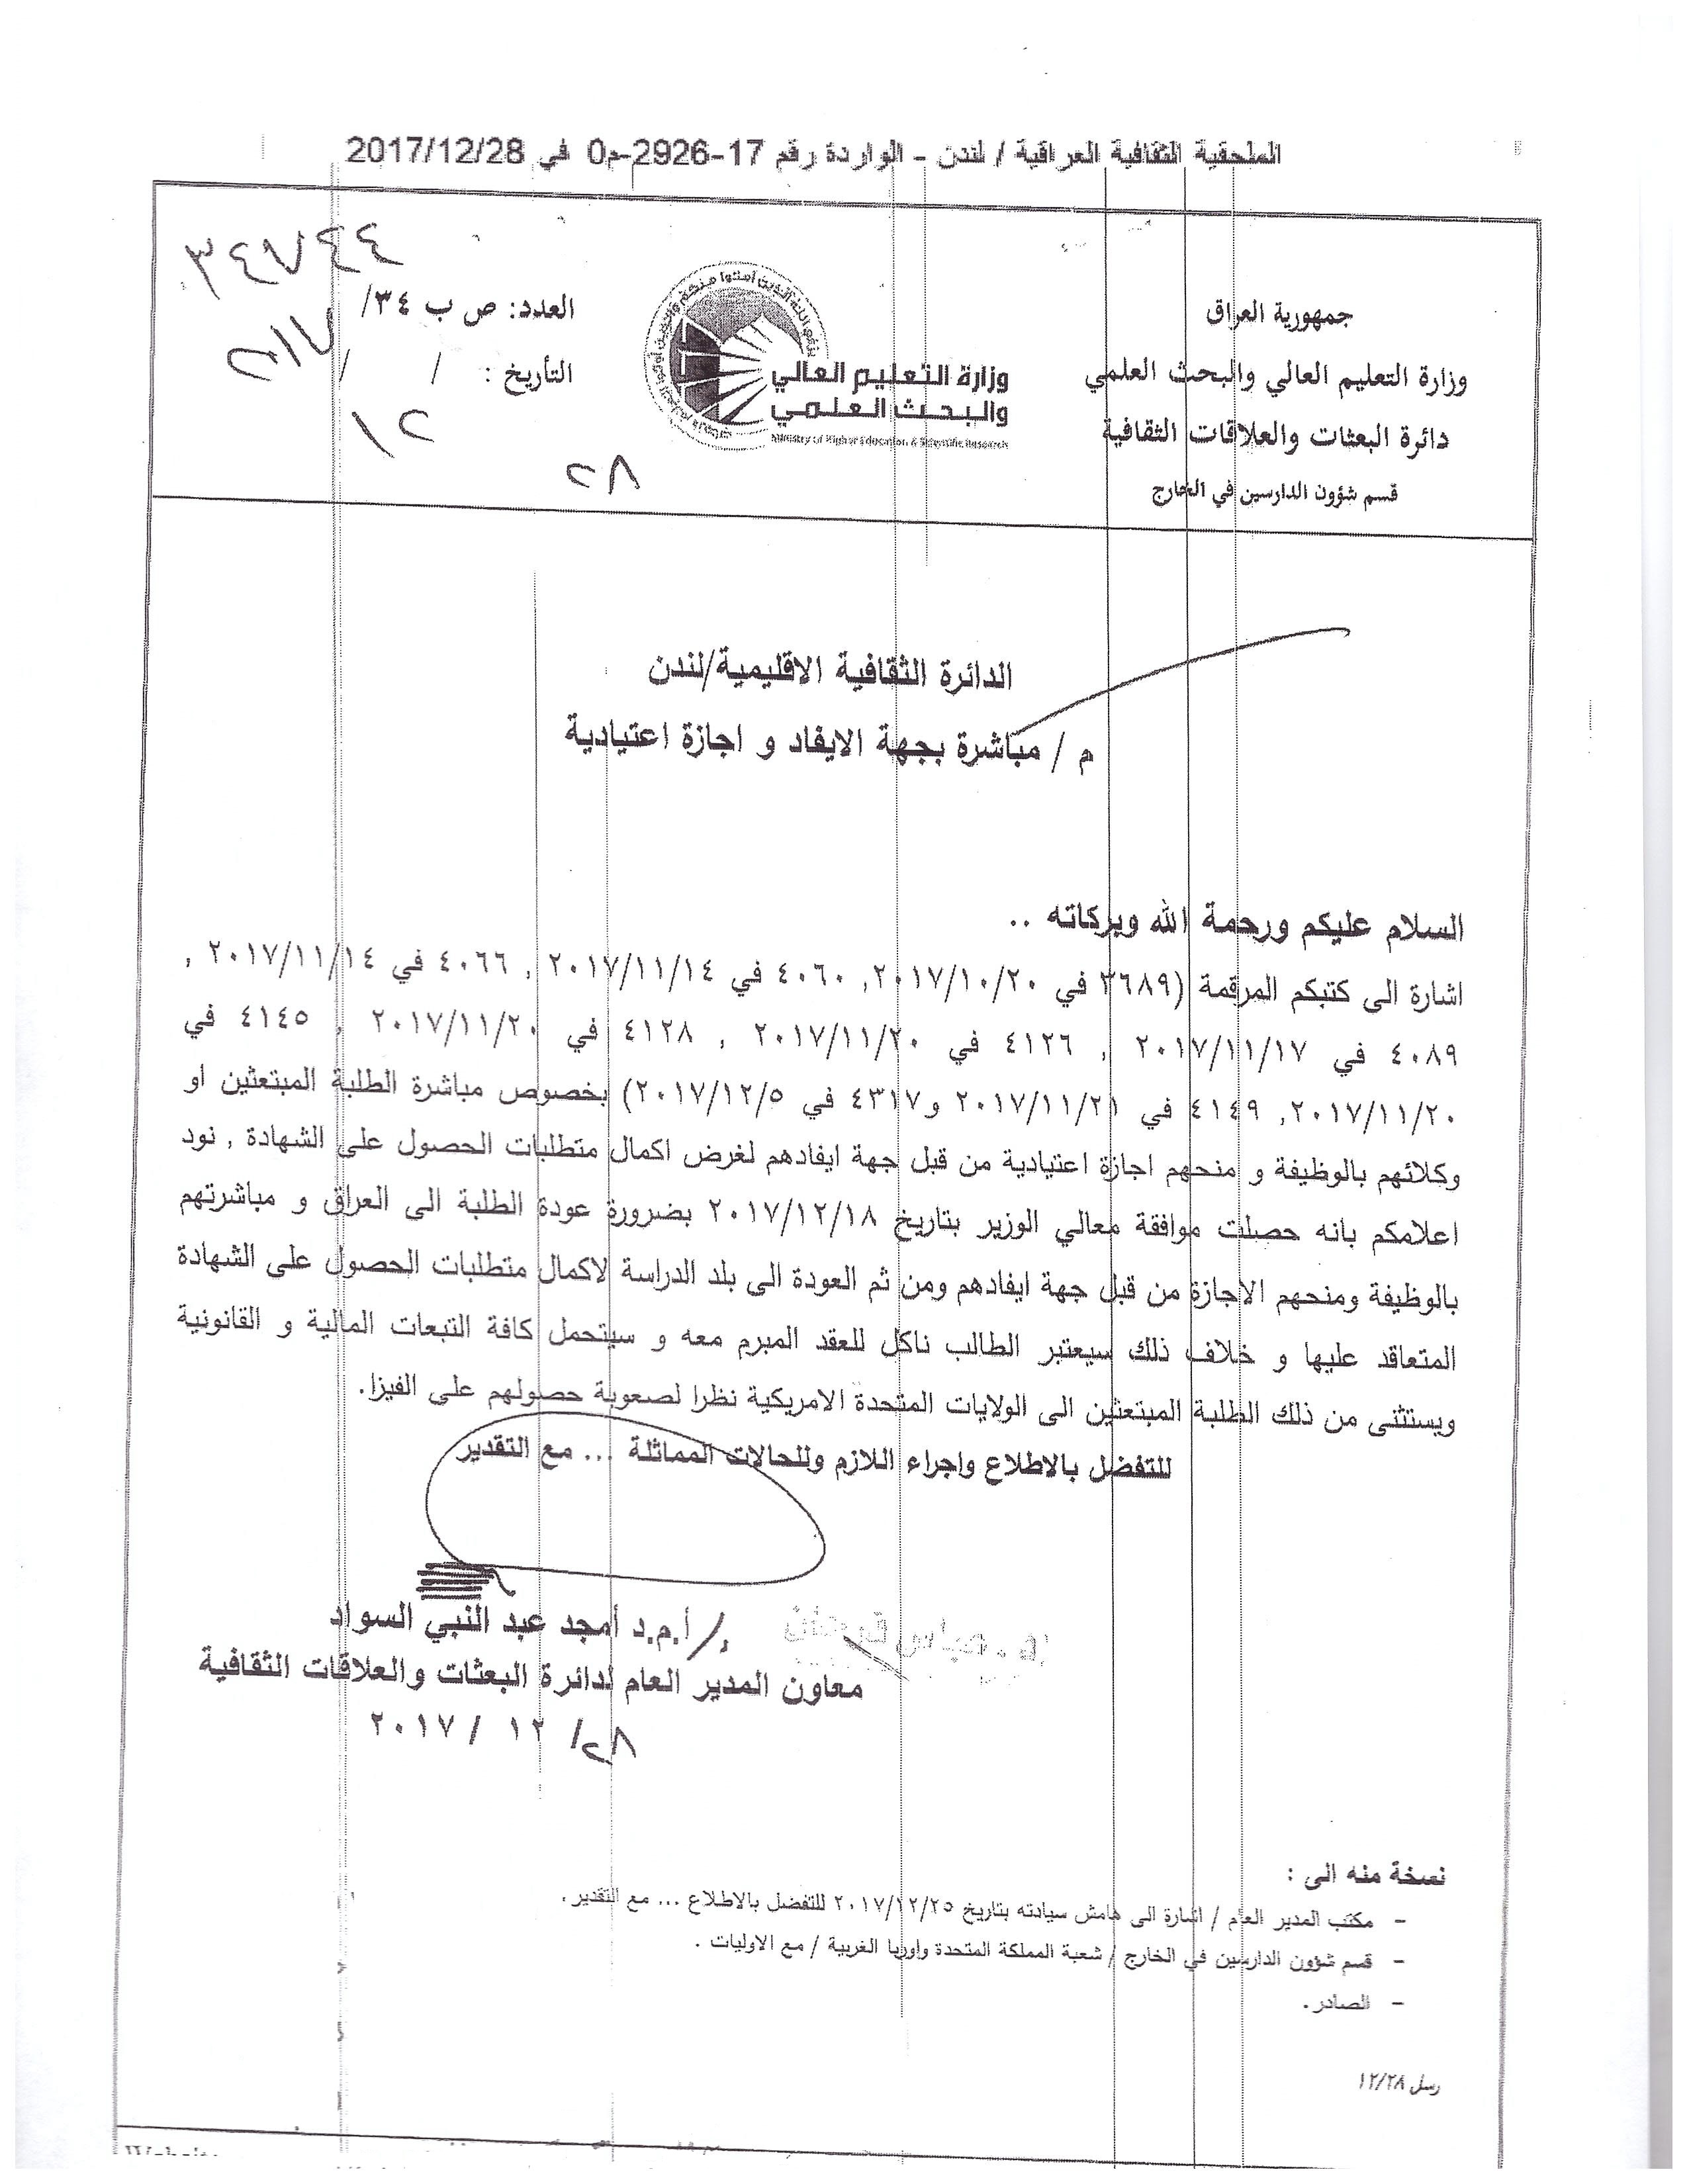 الملحقية الثقافية العراقية / لندن - الواردة رقم 17-2926-م0 في 2017/12/28
جمهورية العراق
وزارة التعليم العالي والبحث العلمي
دائرة البعثات والعلاقات الثقافية
قسم شؤون الدارسين في الخارج
وزارة التعليم العالي
والبحث العلمي
Ministry of Higher Education & Scientific Research
العدد: ص ب ٣٤/
التأريخ : / /
٢٨
١٢
الدائرة الثقافية الاقليمية/لندن
م / مباشرة بجهة الايفاد و اجازة اعتيادية
السلام عليكم ورحمة الله وبركاته ..
اشارة الى كتبكم المرقمة (٣٦٨٩ في ٢٠١٧/١٠/٢٠, ٤٠٦٠ في ٢٠١٧/١١/١٤ , ٤٠٦٦ في ٢٠١٧/١١/١٤ ,
٤٠٨٩ في ٢٠١٧/١١/١٧ , ٤١٢٦ في ٢٠١٧/١١/٢٠ , ٤١٢٨ في ٢٠١٧/١١/٢٠ , ٤١٤٥ في
٢٠١٧/١١/٢٠, ٤١٤٩ في ٢٠١٧/١١/٢١ و٤٣١٧ في ٢٠١٧/١٢/٥) بخصوص مباشرة الطلبة المبتعثين او
وكلائهم بالوظيفة و منحهم اجازة اعتيادية من قبل جهة ايفادهم لغرض اكمال متطلبات الحصول على الشهادة , نود
اعلامكم بانه حصلت موافقة معالي الوزير بتاريخ ٢٠١٧/١٢/١٨ بضرورة عودة الطلبة الى العراق و مباشرتهم
بالوظيفة ومنحهم الاجازة من قبل جهة ايفادهم ومن ثم العودة الى بلد الدراسة لاكمال متطلبات الحصول على الشهادة
المتعاقد عليها و خلاف ذلك سيعتبر الطالب ناكل للعقد المبرم معه و سيتحمل كافة التبعات المالية و القانونية
ويستثنى من ذلك الطلبة المبتعثين الى الولايات المتحدة الامريكية نظرا لصعوبة حصولهم على الفيزا.
للتفضل بالاطلاع واجراء اللازم وللحالات المماثلة ... مع التقدير
أ.م.د أمجد عبد النبي السواد
معاون المدير العام لدائرة البعثات والعلاقات الثقافية
٢٨/ ١٢ / ٢٠١٧
نسخة منه الى :
- مكتب المدير العام / اشارة الى هامش سيادته بتاريخ ٢٠١٧/١٢/٢٥ للتفضل بالاطلاع ... مع التقدير.
- قسم شؤون الدارسين في الخارج / شعبة المملكة المتحدة واوربا الغربية / مع الاوليات .
- الصادر.
رسل ١٢/٢٨